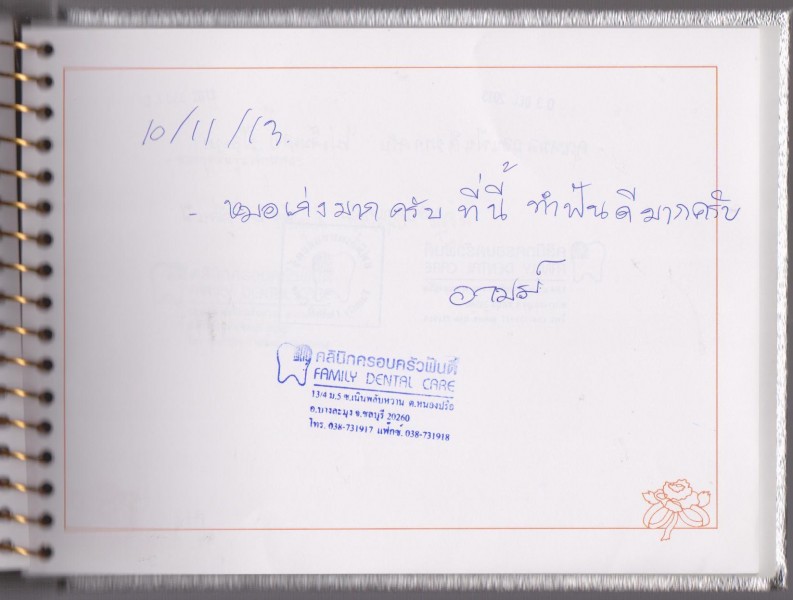 10/11/13
- หมอเก่งมากครับ ที่นี่ ทำฟันดีมากครับ
คลินิกครอบครัวฟันดี
FAMILY DENTAL CARE
13/4 ม.5 ซ.เนินพลับหวาน ต.หนองปรือ
อ.บางละมุง จ.ชลบุรี 20260
โทร. 038-731917 แฟ็กซ์. 038-731918